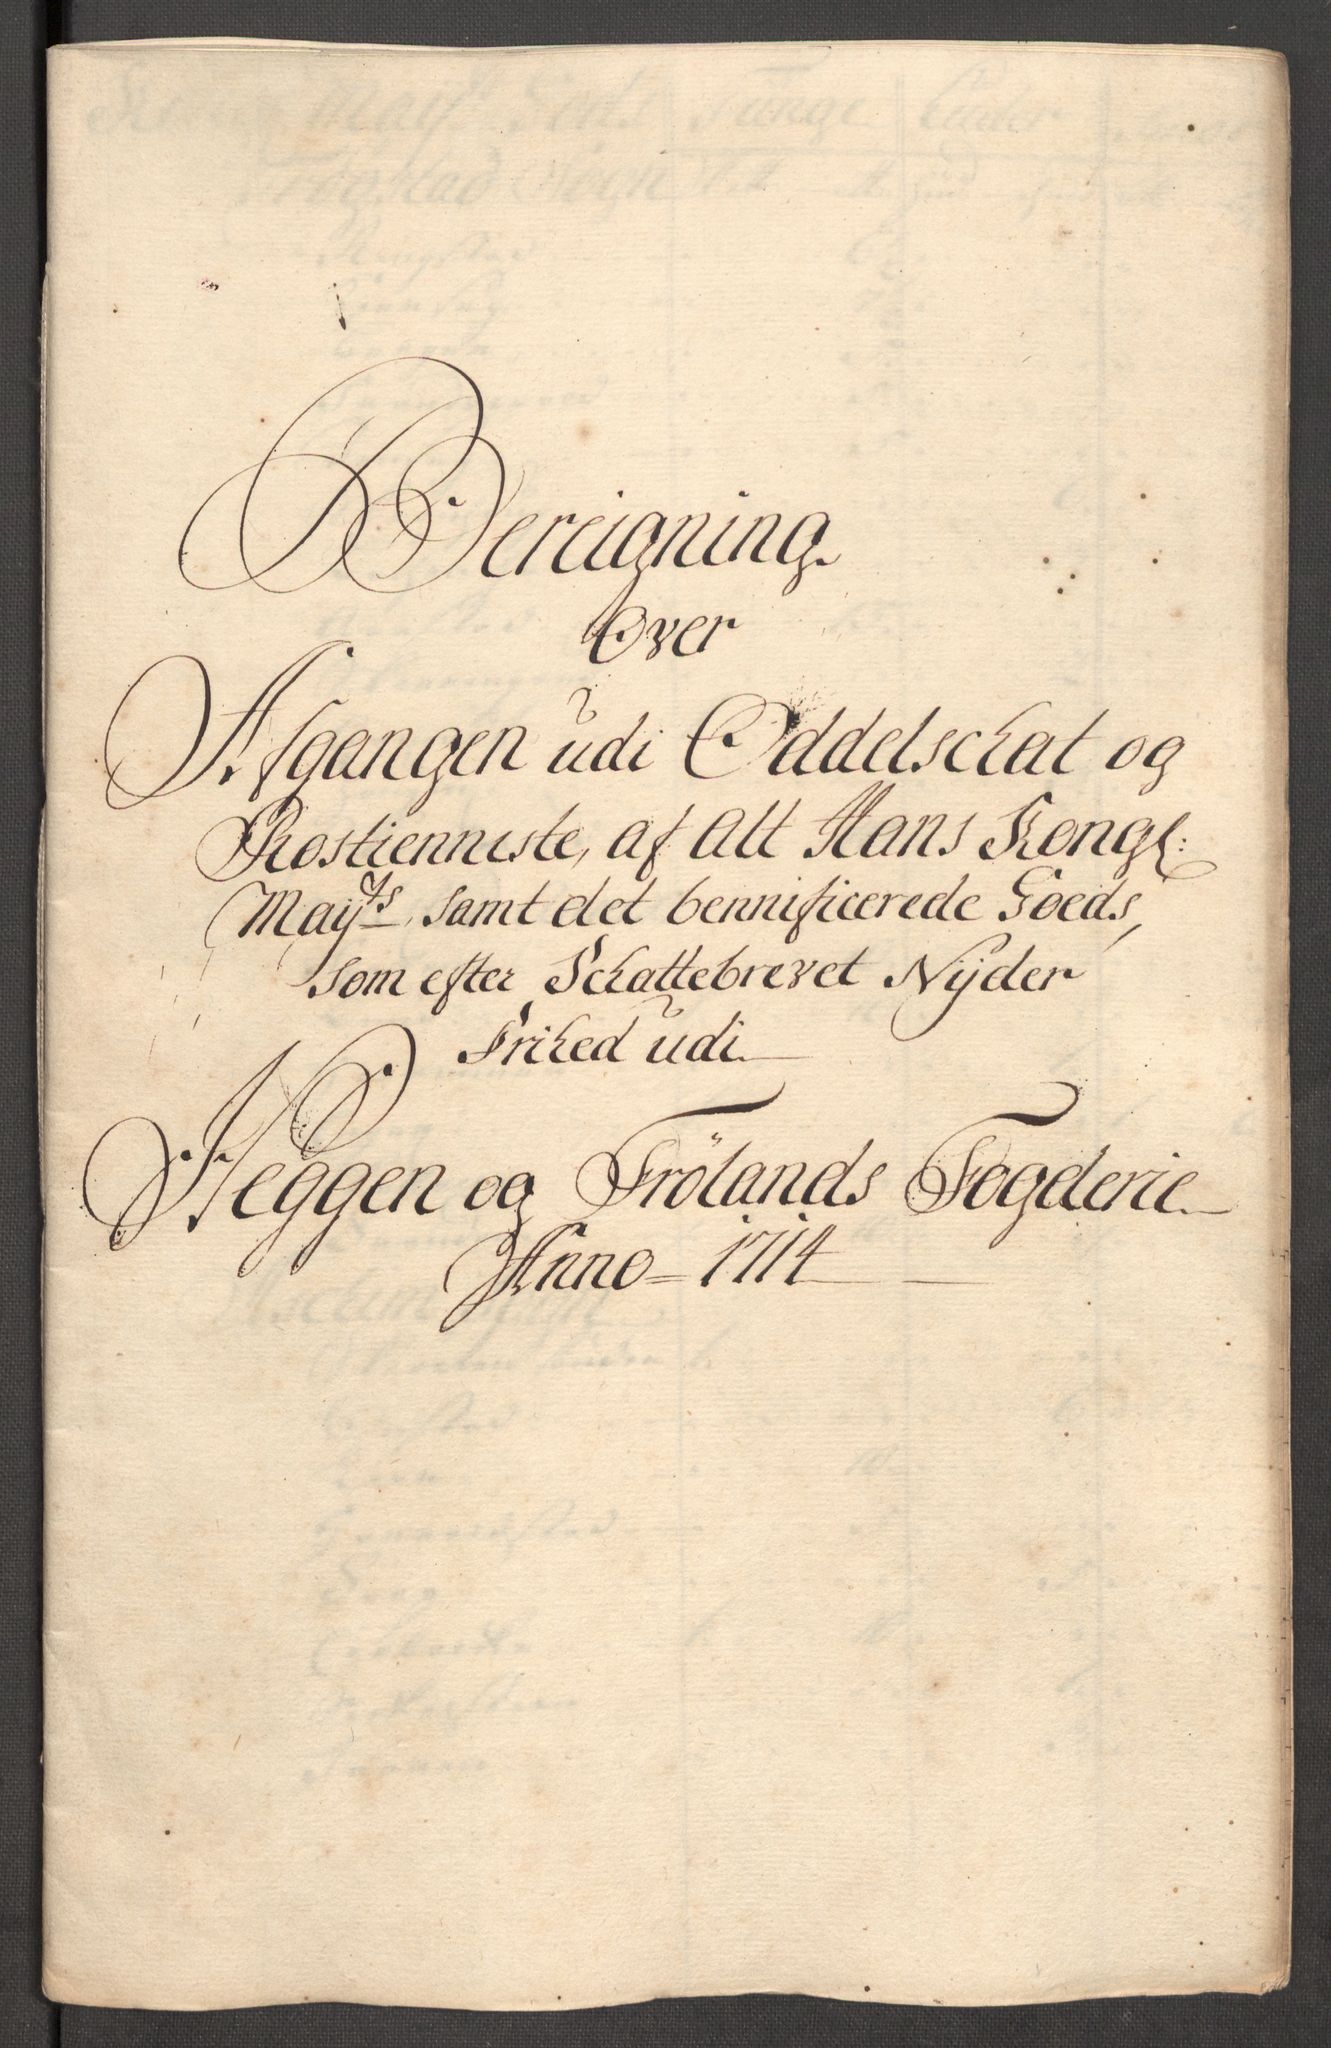 Bereigning
Over
Afgangen udi Oddelschat og
Rostienniste, af alt Hans Kongl:
Mayts samt det bennificerede Goeds,
som efter Schattebrevet Nyder
Frihed udi
Heggen og Frölands Fogderie
Anno 1714